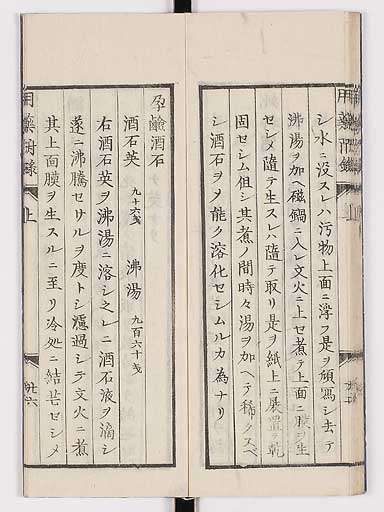 シ水ニ没スレハ汚物上面ニ浮フ是ヲ傾寫シ去テ
沸湯ヲ加ヘ磁鍋ニ入レ文火ニ上セ煮テ上面ニ膜ヲ生
セシメ隨テ生スレハ隨テ取リ是ヲ紙上ニ展置シ乾
固セシム但シ其煮ノ間時々湯ヲ加ヘテ稀クスベ
シ酒石ヲメ能ク溶化セシムルカ為ナリ
孕鹼酒石
酒石英 九十六戔 沸湯 九百六十戔
右酒石英ヲ沸湯ニ溶シ之レニ酒石液ヲ滴シ
遂ニ沸騰セサルヲ度トシ濾過シテ文火ニ煮
其上面膜ヲ生スルニ至リ冷処ニ結芒セシメ
上
廿六